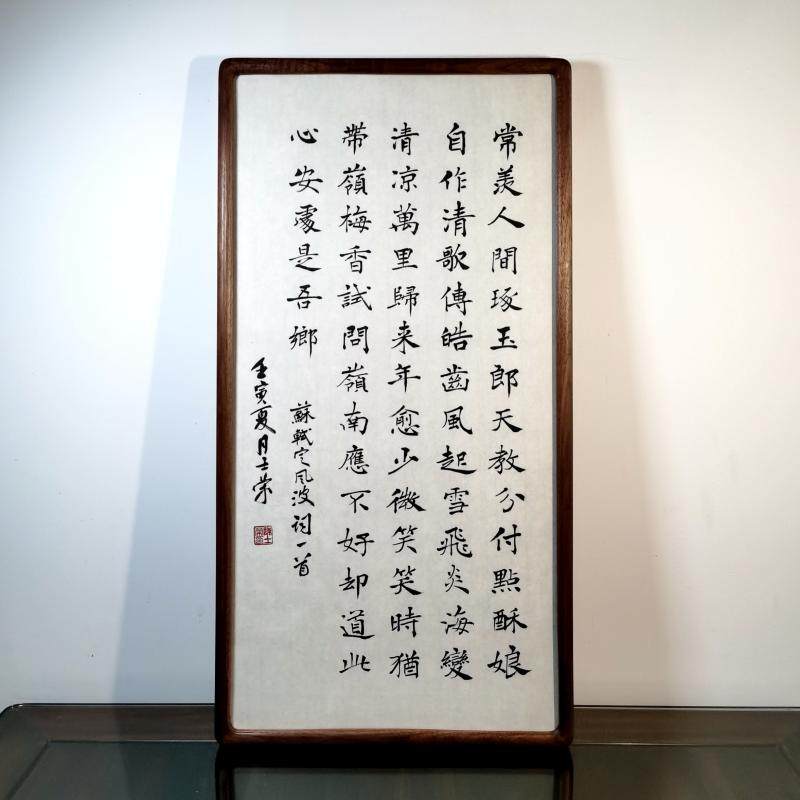 常羡人間琢玉郎天教分付點酥娘
自作清歌傳皓齒風起雪飛炎海變
清凉萬里歸来年愈少微笑笑時猶
帶嶺梅香試問嶺南應不好却道此
心安處是吾鄉
蘇軾定风波詞一首
壬寅夏月士荣